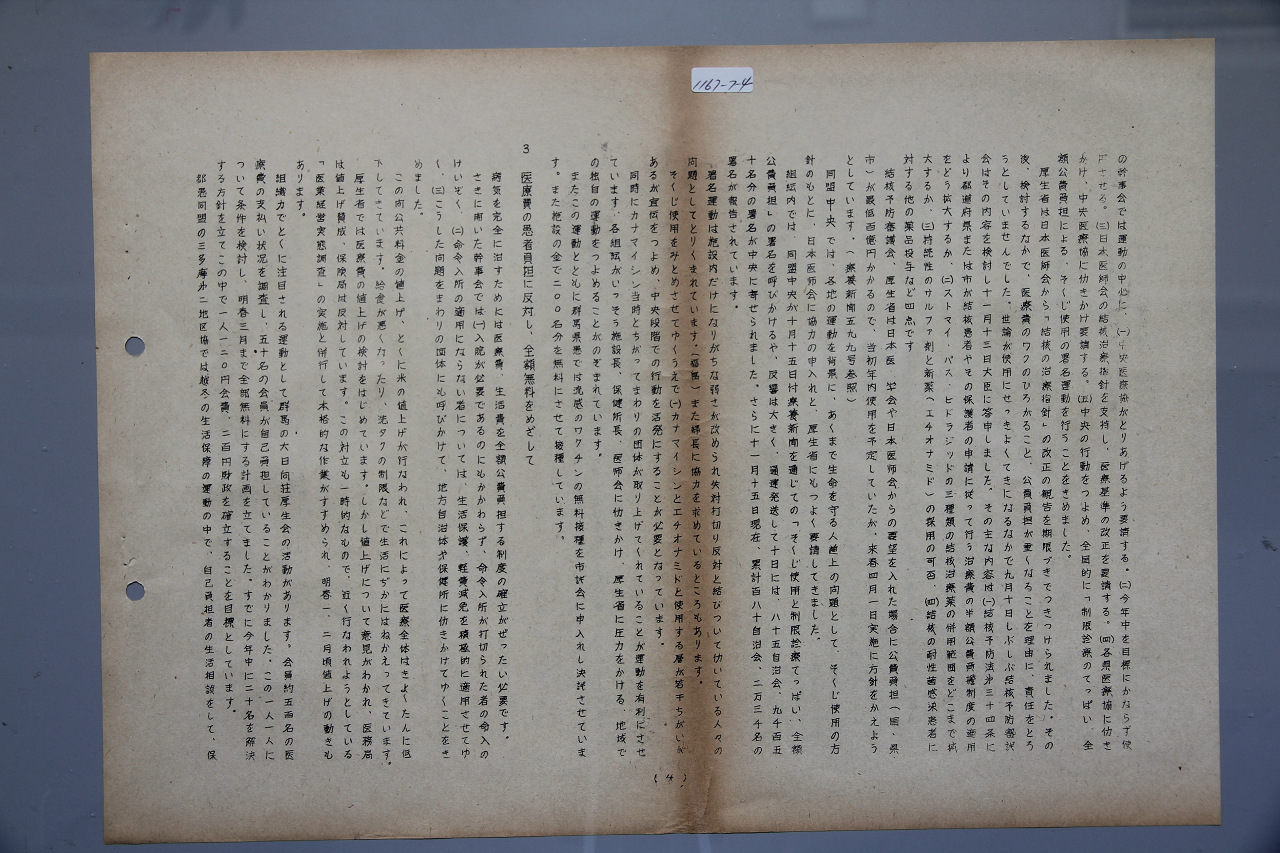 1167-7-4
の幹事会では運動の中心に、(一)中央医療協がとりあげるよう要請する。(二)今年中を目標にかならず使
用させる。(三)日本医師会の結核治療指針を支持し、医療基準の改正を要請する。(四)各県医療協に仂き
かけ、中央医療協に仂きかけ要請する。(五)中央の行動をつよめ、全国的に「制限診療のてっぱい、全
額公費負担による、そくじ使用の署名運動を行うことをきめました。
厚生省は日本医師会から「結核の治療指針」の改正の観告を期限づきでつきつけられました。その
後、検討するなかで、医療費のワクのひろがること、公費負担が重くなることを理由に、責任をとろ
うとしていませんでした。世論が使用にせっきよくてきになるなかで九月十日しぶしぶ結核予防審議
会はその内容を検討し十一月十三日大臣に答申しました。その主な内容は(一)結核予防法第三十四条に
より都道府県または市が結核患者やその保護者の申請に従って行う治療費の半額公費負担制度の適用
をどう拡大するか、(二)ストマイ・パス・ヒドラジッドの三種類の結核治療薬の併用範囲をどこまで拡
大するか、(三)持続性のサルファ剤と新薬(エチオナミド)の採用の可否、(四)結核の耐性菌感染患者に
対する他の薬品投与など四点です
結核予防審議会、厚生省は日本医学会や日本医師会からの要望を入れた場合に公費負担(国、県、
市)が最低百億円かかるので、当初年内使用を予定していたが、来春四月一日実施に方針をかえよう
としています。(療養新聞五九九号参照)
同盟中央では、各地の運動を背景に、あくまで生命を守る人道上の問題として、そくじ使用の方
針のもとに、日本医師会に協力の申入れと、厚生省にもつよく要請してきました。
組織内では、同盟中央が十月十五日付療養新聞を通じての「そくじ使用と制限診療てっぱい、全額
公費負担」の署名を呼びかけるや、反響は大きく、通達発送して十日には、八十五自治会、九千百五
十名分の署名が中央に寄せられました。さらに十一月十五日現在、累計百八十自治会、二万三千名の
署名が報告されています。
署名運動は施設内だけになりがちな弱さが改められ失対打切り反対と結びついて仂いている人々の
問題としてとりくまれています。(福島)また婦長に協力を求めているところもあります。
そくじ使用をみとめさせてゆくうえで(一)カナマイシンとエチオナミドと使用する層が若干ちがいが
あるが宣伝をつよめ、中央段階での行動を活発にすることが必要となっています。
同時にカナマイシン当時とちがってまわりの団体が取り上げてくれていることが運動を有利にさせ
ています。各組織がいっそう施設長、保健所長、医師会に仂きかけ、厚生省に圧力をかける、地域で
の独自の運動をつよめることがのぞまれています。
またこの運動とともに群馬県患では流感のワクチンの無料接種を市議会に申入れし決議させていま
す。また施設の金で二〇〇名分を無料にさせて接種しています。
3 医療費の患者負担に反対し、全額無料をめざして
病気を完全に治すためには医療費、生活費を全額公費負担する制度の確立がぜったい必要です。
さきに開いた幹事会では(一)入院が必要であるのにもかかわらず、命令入所が打切られた者の命入の
けいぞく、(二)命令入所の適用にならない者については、生活保護、軽費減免を積極的に適用させてゆ
く、(三)こうした問題をまわりの団体にも呼びかけて、地方自治体や保健所に仂きかけてゆくことをき
めました。
この間公共料金の値上げ、とくに米の値上げが行なわれ、これによって医療全体はきよくたんに低
下してきています。給食が悪くなったり、洗タクの制限などで生活にぢかにはねかえってきています。
厚生省では医療費の値上げの検討をはじめています。しかし値上げについて意見がわかれ、医務局
は値上げ賛成、保険局は反対しています。この対立も一時的なもので、近く行なわれようとしている
「医業経営実態調査」の実施と併行して本格的な作業がすすめられ、明春一、二月頃値上げの動きも
あります。
組織力でとくに注目される運動として群馬の大日向荘厚生会の活動があります。会員約五百名の医
療費の支払い状況を調査し、五十名の会員が自己負担していることがわかりました。この一人一人に
ついて条件を検討し、明春三月まで全部無料にする計画を立てました。すでに今年中に二十名を解決
する方針を立てこの中で一人一二〇円会費、二百円財政を確立することを目標としています。
都患同盟の三多摩第二地区協では越冬の生活保障の運動の中で、自己負担者の生活相談をして、保
(4)